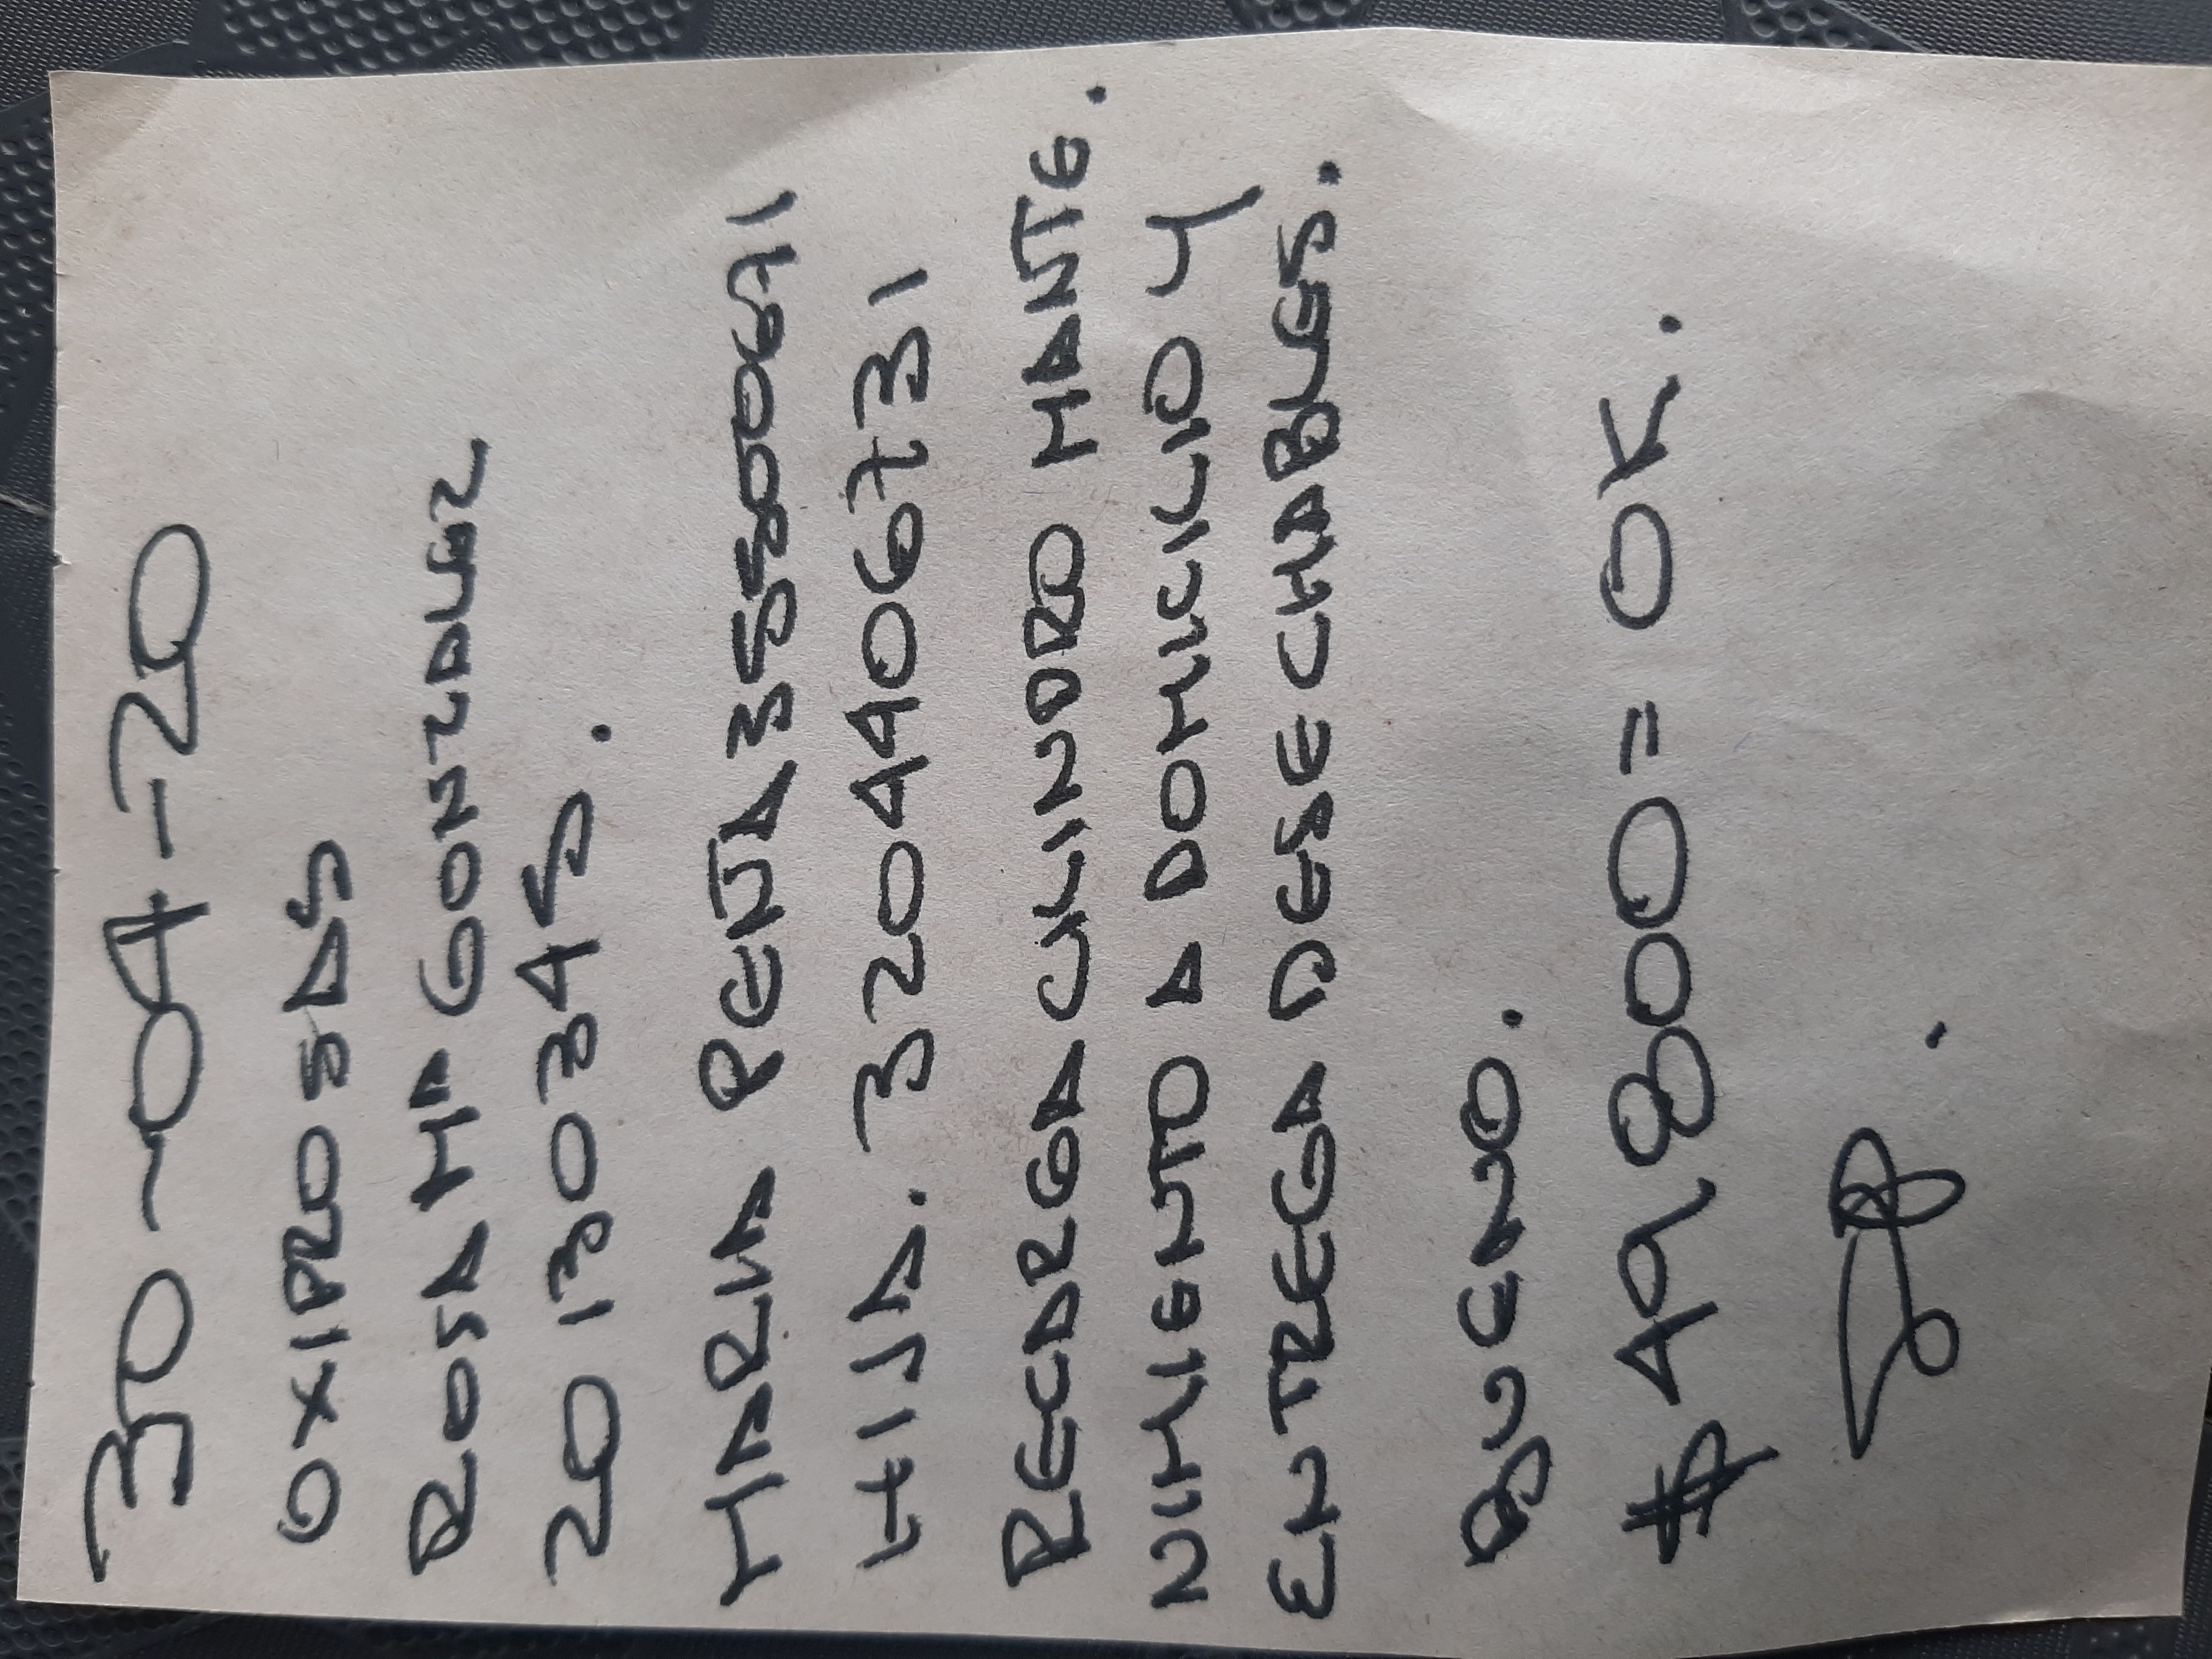 30-04-20
OXIPRO SAS
ROSA Mª GONZALEZ
20130345.
MARIA RENTA
HIJA. 3204406731
RECARGA CILINDRO MANTE.
NIMIENTO A DOMICILIO Y
ENTREGA DESECHABLES.
BUENO.
$49800= OK.